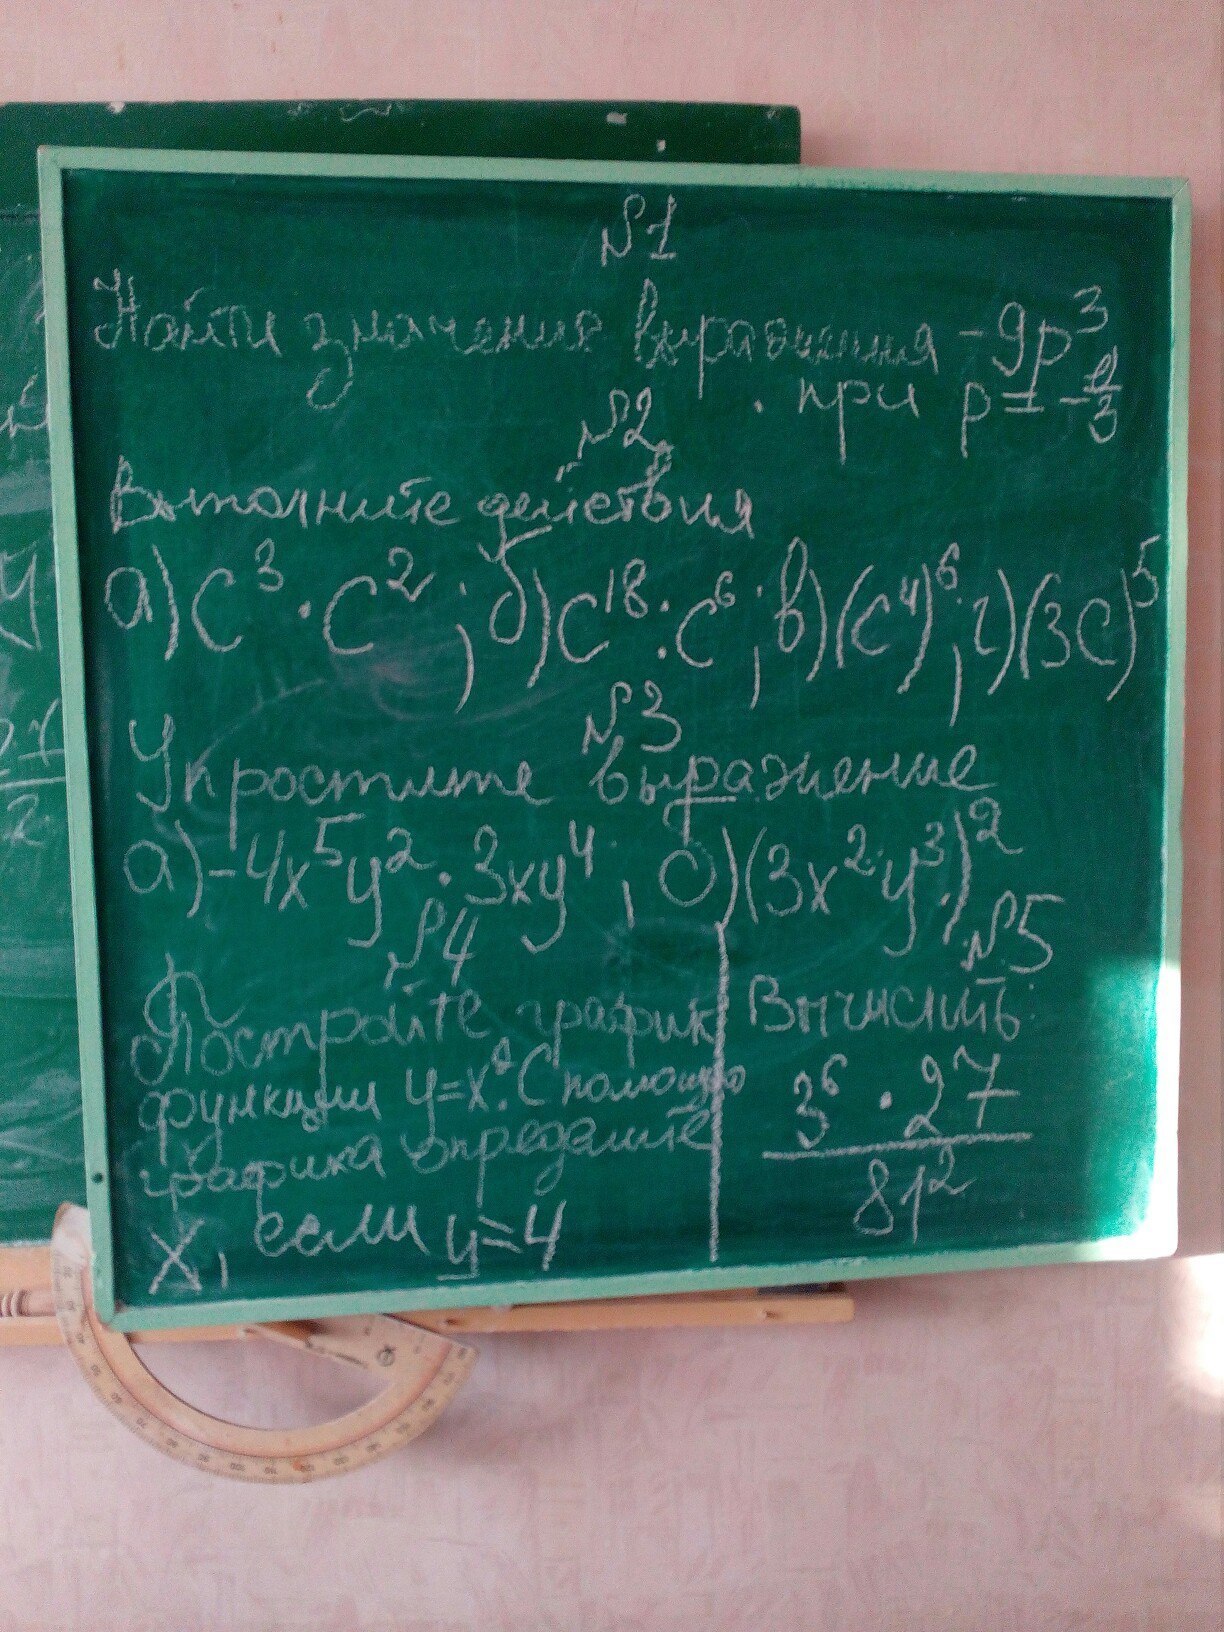 №1
Найти значение выражения -9p³
при p = -1/3
№2
Выполните действия
а) c³ · c²; б) c¹⁸ : c⁶; в) (c⁴)⁶; г) (3c)⁵
№3
Упростите выражение
а) -4x⁵y² · 3xy⁴, б) (3x²y³)²
№4
Постройте график
функции y=x². С помощью
графика определите
x, если y=4
№5
Вычислить
3⁶ · 27
81²